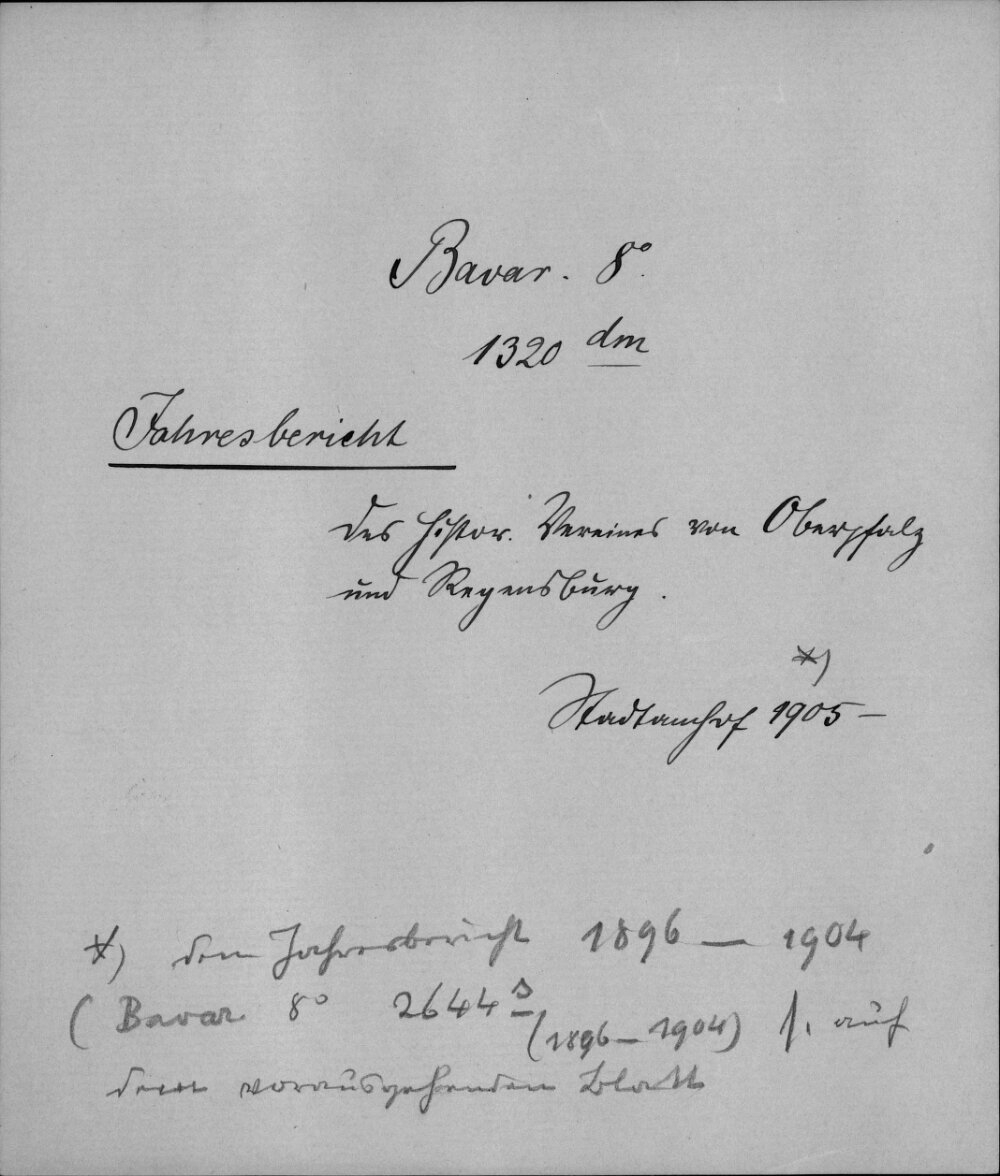 Bavar. 8°.
1320 dm
Jahresbericht
des histor. Vereines von Oberpfalz
und Regensburg.
*)
Stadtamhof 1905–
*) den Jahresbericht 1896 — 1904
(Bavar 8° 2644 s (1896–1904) s. auf
dem vorausgehenden Blatt